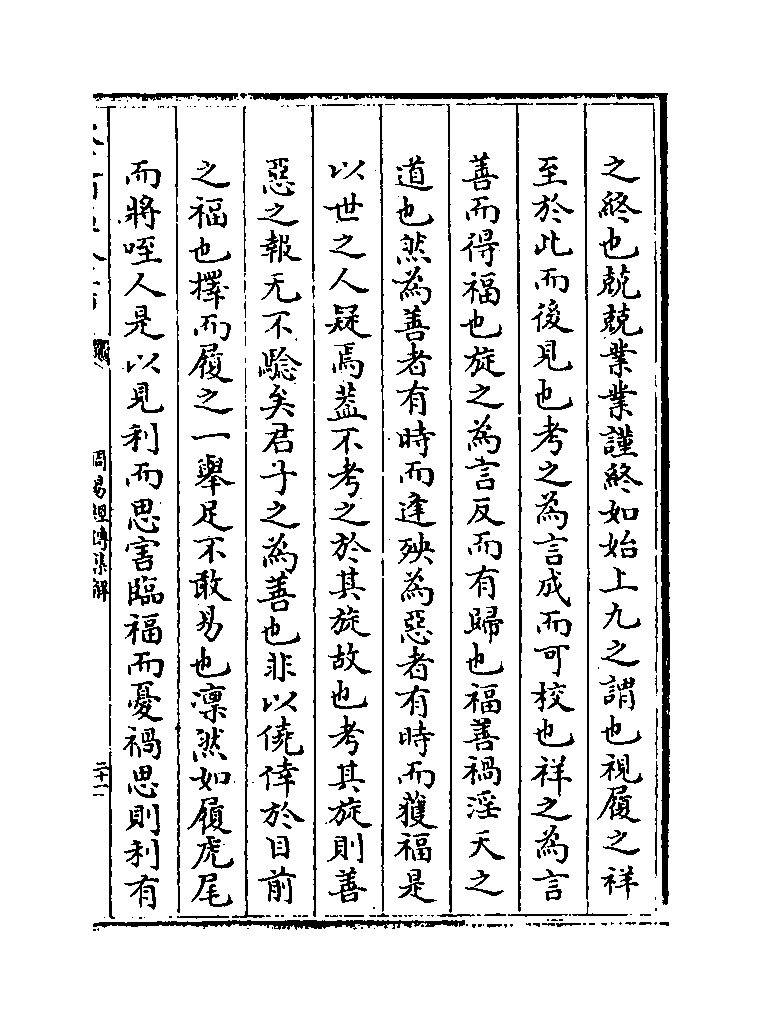 之終也兢兢業業謹終如始上九之謂也視履之祥
至於此而後見也考之為言成而可校也祥之為言
善而得福也旋之為言反而有歸也福善禍淫天之
道也然為善者有時而逢殃為惡者有時而獲福是
以世之人疑焉葢不考之於其旋故也考其旋則善
惡之報无不驗矣君子之為善也非以僥倖於目前
之福也擇而履之一舉足不敢易也凛然如履虎尾
而將咥人是以見利而思害臨福而憂禍思則利有
周易經傳集解
二十一